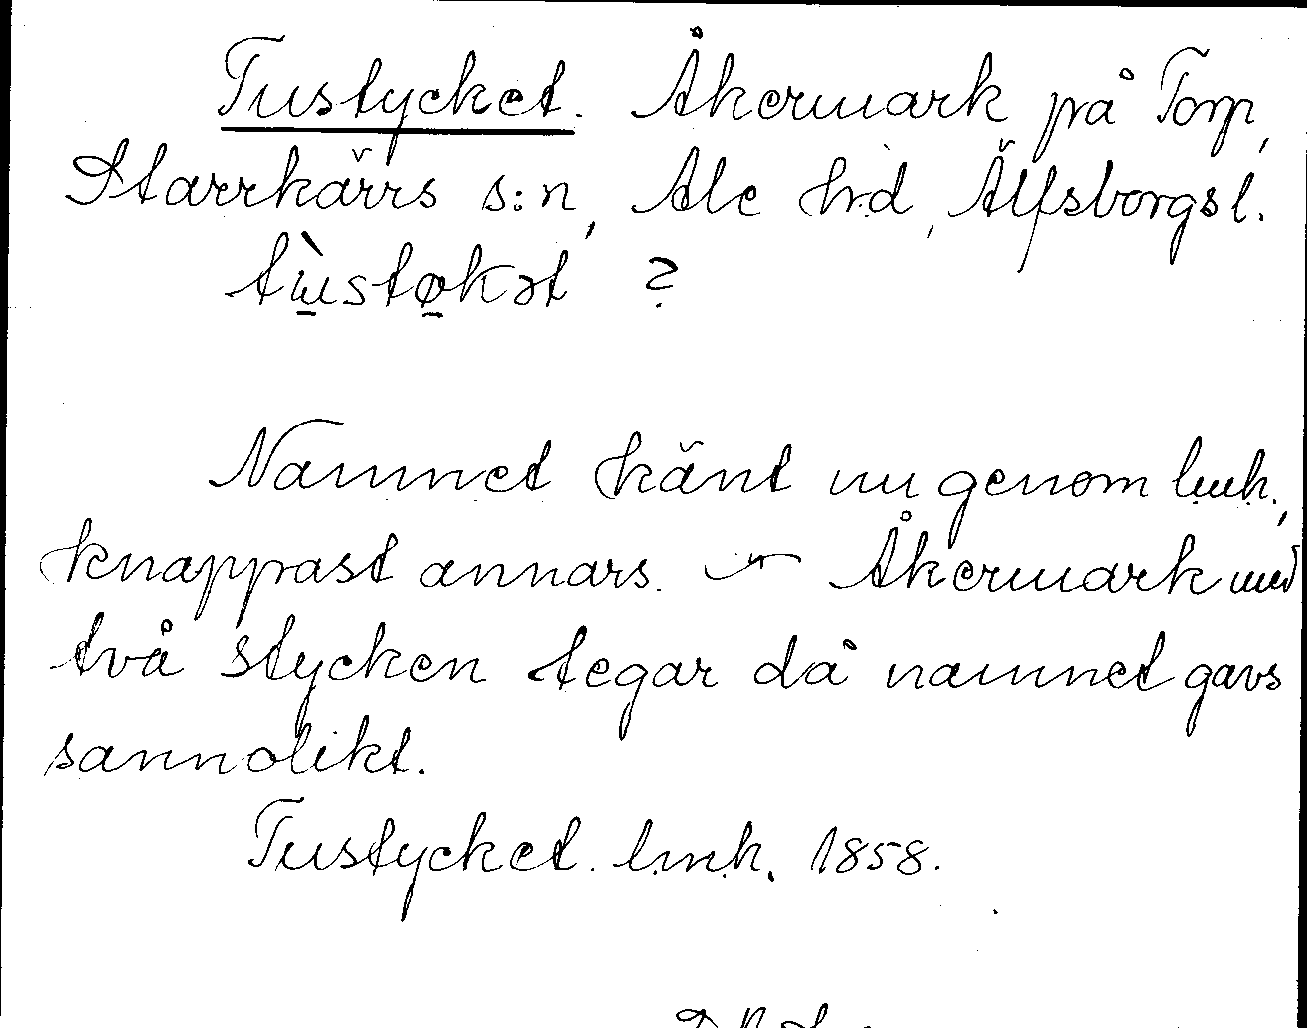 Tustycket. Åkermark på Torp,
Starrkärrs s:n, Ale hrd, Älfsborgs l.
tùstøkət ?
Namnet känt nu genom lmk.,
knappast annars. — Åkermark med
två stycken tegar då namnet gavs
sannolikt.
Tustycket. lmk. 1858.